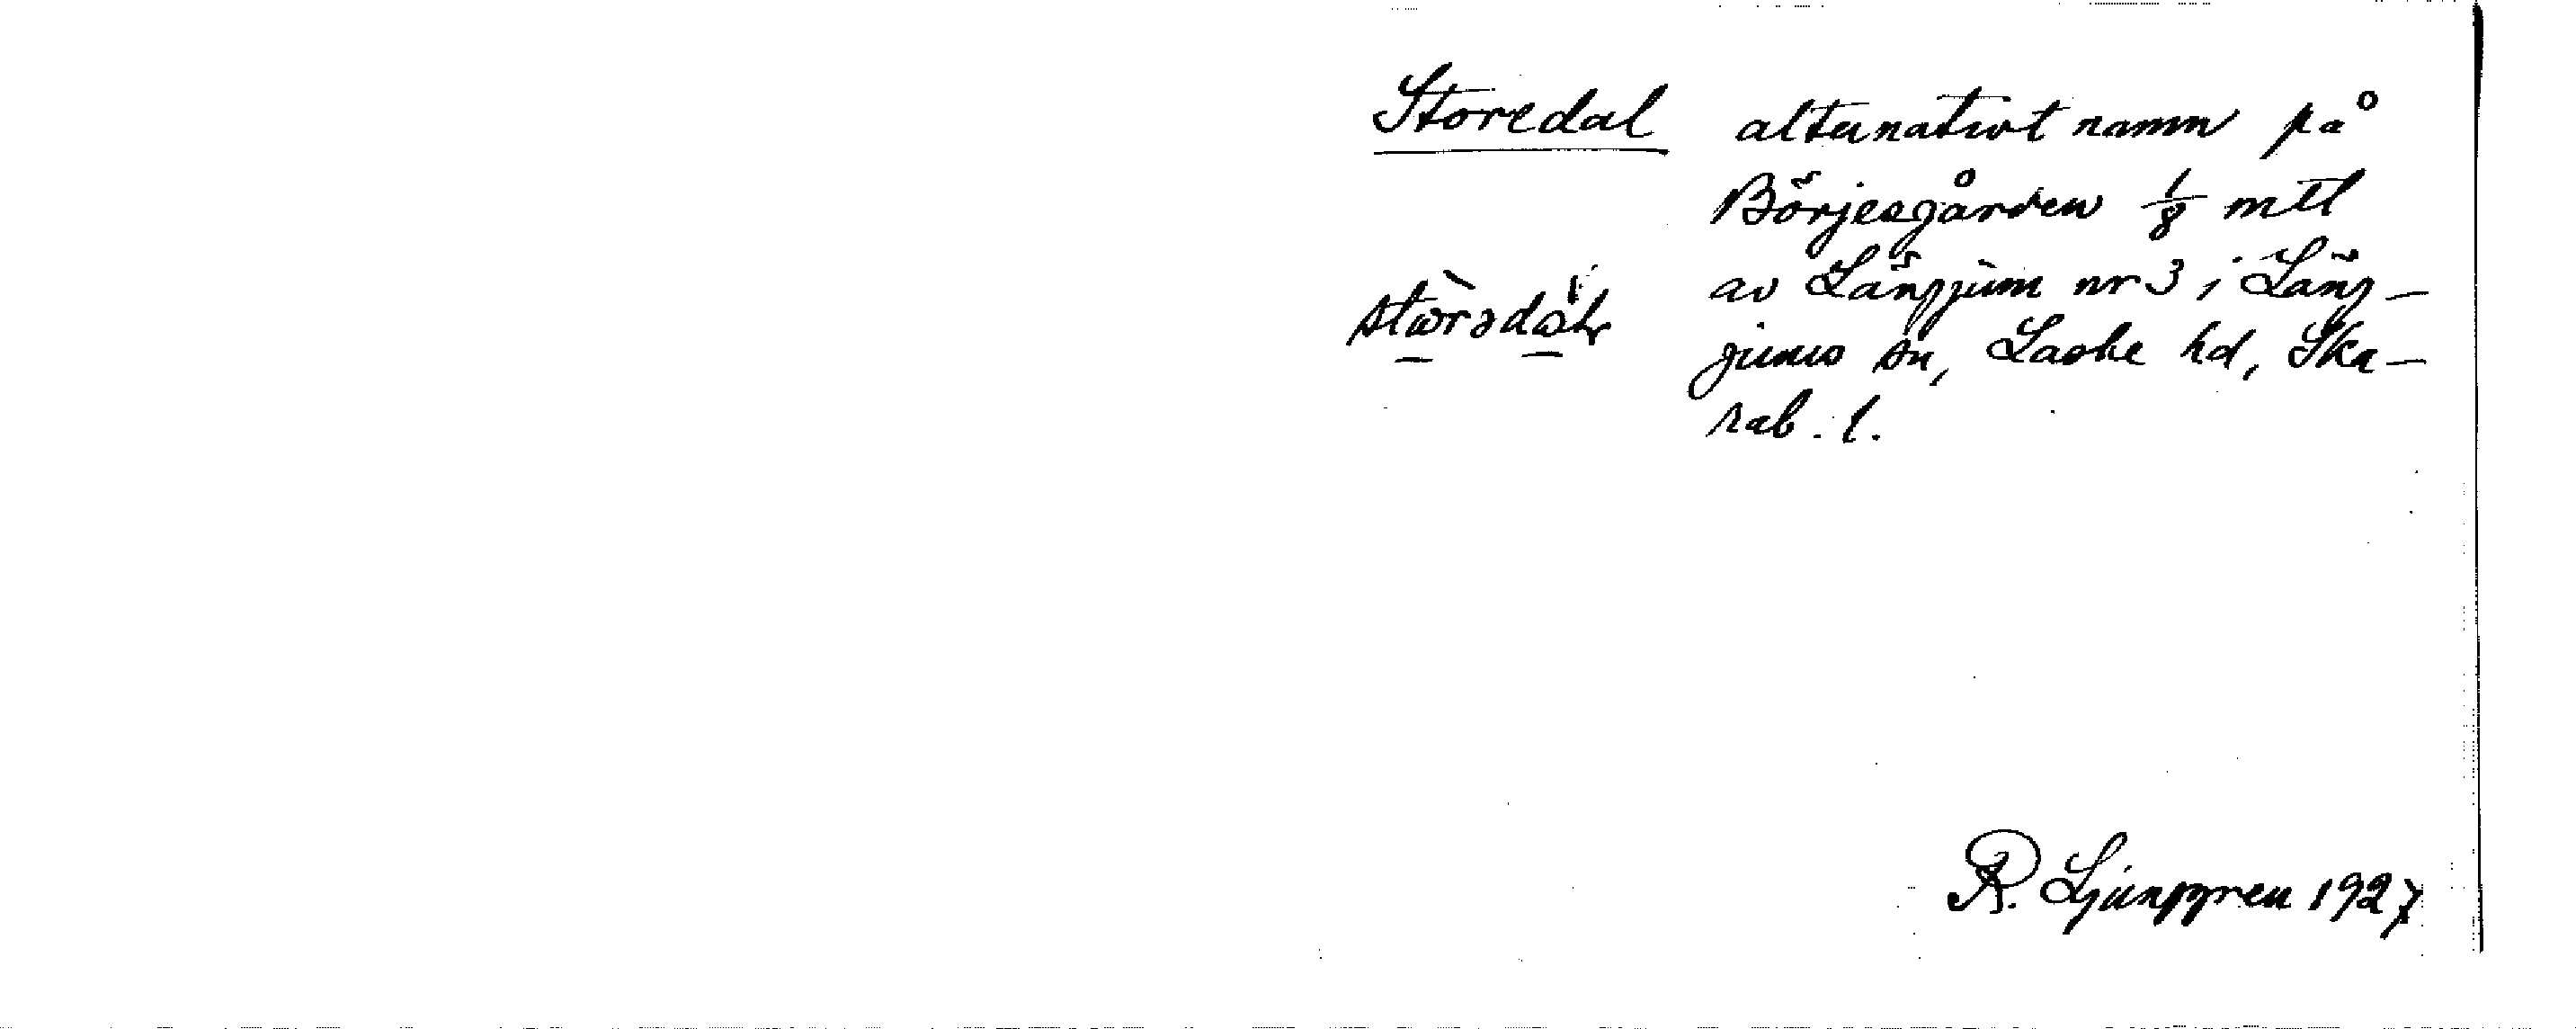 Storedal alternativt namn på
Börjesgården 1/8 mtl
av Längjum nr 3 i Läng-
jums sn, Laske hd, Ska-
rab. l.
R. Ljunggren 1927